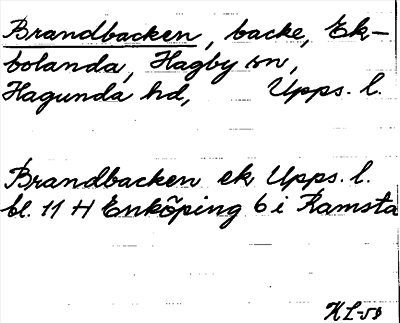 Brandbacken, backe, Ek-
bolanda, Hagby sn,
Hagunda hd, Upps. l.
Brandbacken ek Upps. l.
bl. 11 H Enköping 6 i Ramsta
HL-58